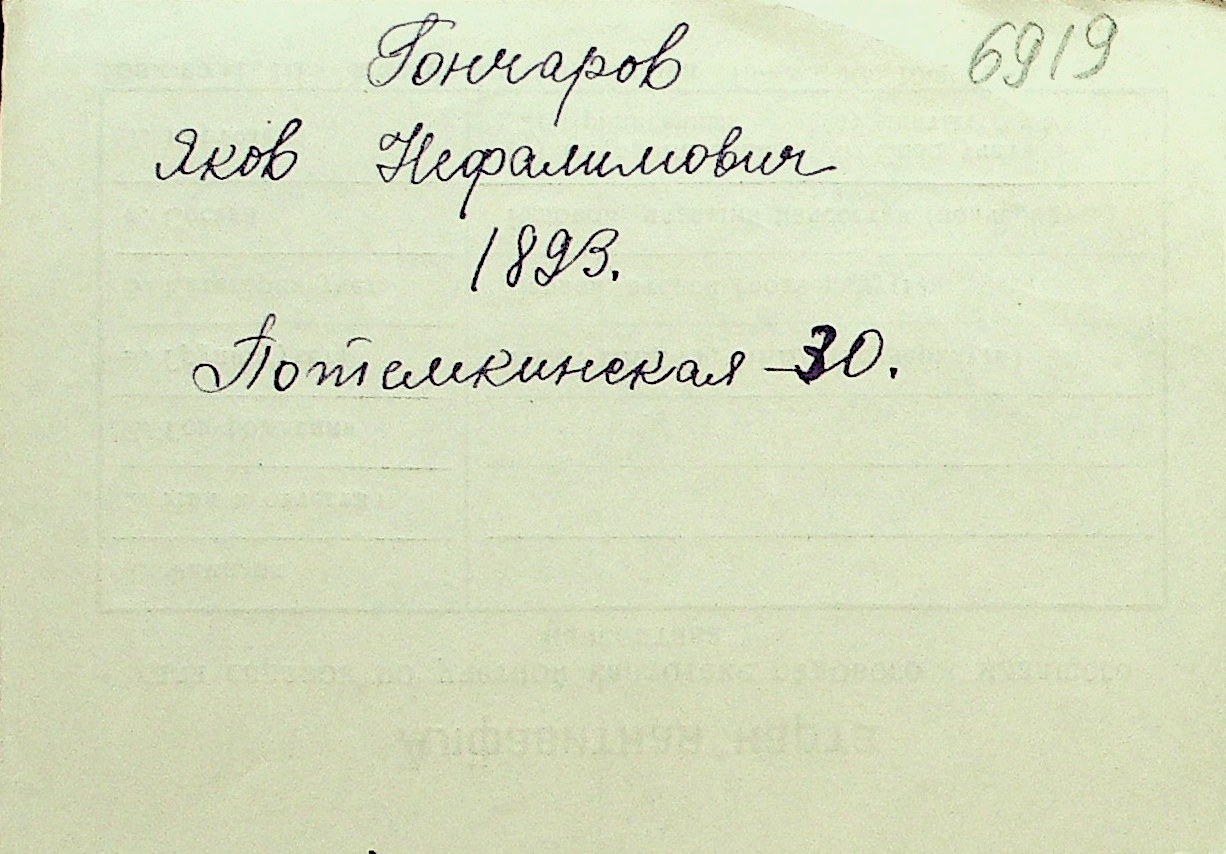 6919
Гончаров
Яков Нефалимович
1893.
Потемкинская - 30.